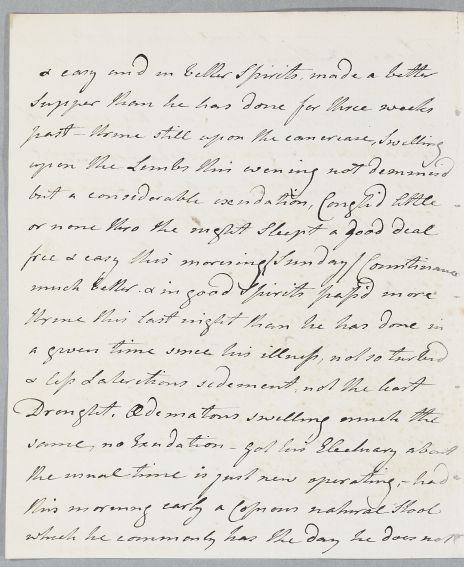 & easy and in better Spirits, made a better
Supper than he has done for three weeks
past – Urine still upon the encrease, Swelling
upon the Limbs this evening not demineis'd
but a considerable exudation, Cough'd little
or none thro the night Sleept a good deal
free & easy this morning (Sunday) Countinance
much better & in good Spirits pass'd more
Urine this last night than he has done in
a given time since his illness, not so turbid
& less Lateritious sediment, not the least
Drought. Œdematous swelling much the
same, no Exudation – got his Electuary about
the usual time is just now operating, – had
this morning early a Copious natural Stool
which he commonly has the day he does not